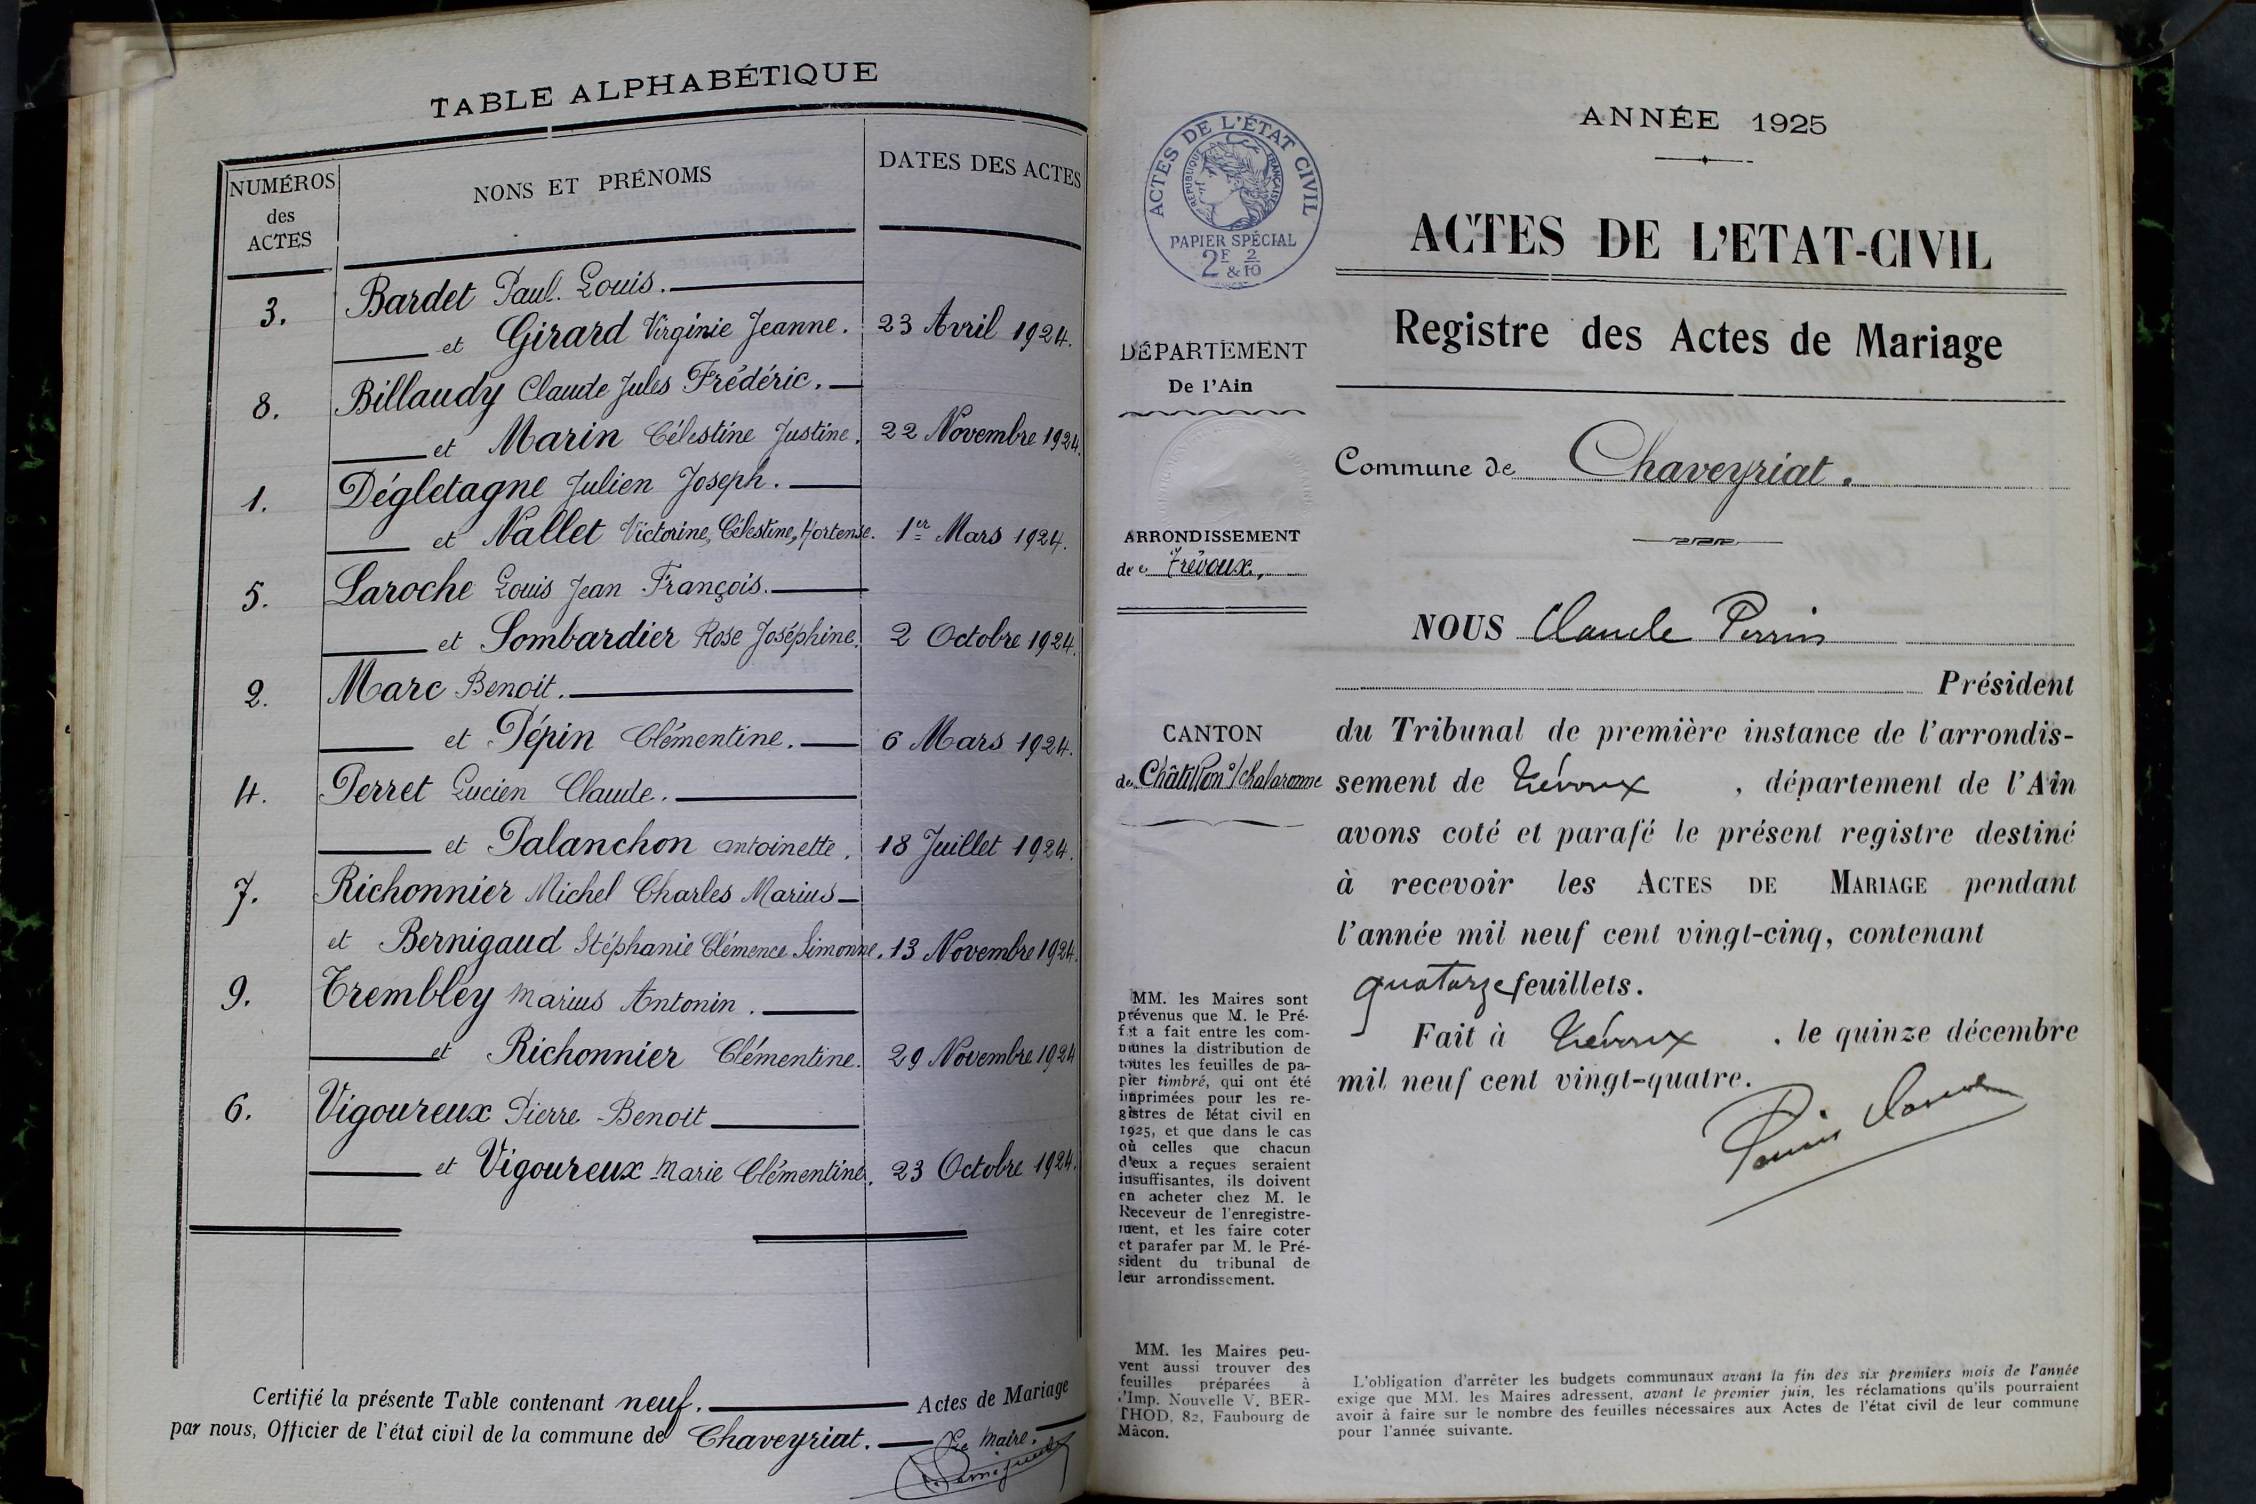 TABLE ALPHABÉTIQUE
NUMÉROS
des
ACTES
NONS ET PRÉNOMS
DATES DES ACTES
3.
Bardet Paul. Louis.
et Girard Virginie Jeanne.
23 Avril 1924.
8.
Billaudy Claude Jules Frédéric.
et Marin Célestine Justine.
22 Novembre 1924.
1.
Dégletagne Julien Joseph.
et Nallet Victorine, Célestine, Hortense.
1er Mars 1924.
5.
Laroche Louis Jean François.
et Lombardier Rose Joséphine.
2 Octobre 1924.
2.
Marc Benoit.
et Pépin Clémentine.
6 Mars 1924.
4.
Perret Lucien Claude.
et Palanchon Antoinette.
18 Juillet 1924.
7.
Richonnier Michel Charles Marius
et Bernigaud Stéphanie Clémence Simonne.
13 Novembre 1924.
9.
Trembley Marius Antonin.
et Richonnier Clémentine.
29 Novembre 1924
6.
Vigoureux Pierre Benoit
et Vigoureux Marie Clémentine.
23 Octobre 1924.
Certifié la présente Table contenant neuf. Actes de Mariage
par nous, Officier de l'état civil de la commune de Chaveyriat.
Le Maire.
ACTES DE L'ÉTAT CIVIL
RÉPUBLIQUE FRANÇAISE
PAPIER SPÉCIAL
2F & 2/10
DÉPARTEMENT
De l'Ain
ARRONDISSEMENT
de Trévoux,
CANTON
de Châtillon s/ Chalaronne
MM. les Maires sont
prévenus que M. le Pré-
fet a fait entre les com-
munes la distribution de
toutes les feuilles de pa-
pier timbré, qui ont été
imprimées pour les re-
gistres de l'état civil en
1925, et que dans le cas
où celles que chacun
d'eux a reçues seraient
insuffisantes, ils doivent
en acheter chez M. le
Receveur de l'enregistre-
ment, et les faire coter
et parafer par M. le Pré-
sident du tribunal de
leur arrondissement.
MM. les Maires peu-
vent aussi trouver des
feuilles préparées à
l'Imp. Nouvelle V. BER-
THOD, 82, Faubourg de
Mâcon.
ANNÉE 1925
ACTES DE L'ETAT-CIVIL
Registre des Actes de Mariage
Commune de Chaveyriat.
NOUS Claude Perrin
Président
du Tribunal de première instance de l'arrondis-
sement de Trévoux, département de l'Ain
avons coté et parafé le présent registre destiné
à recevoir les ACTES DE MARIAGE pendant
l'année mil neuf cent vingt-cinq, contenant
quatorze feuillets.
Fait à Trévoux. le quinze décembre
mil neuf cent vingt-quatre.
L'obligation d'arrêter les budgets communaux avant la fin des six premiers mois de l'année
exige que MM. les Maires adressent, avant le premier juin, les réclamations qu'ils pourraient
avoir à faire sur le nombre des feuilles nécessaires aux Actes de l'état civil de leur commune
pour l'année suivante.